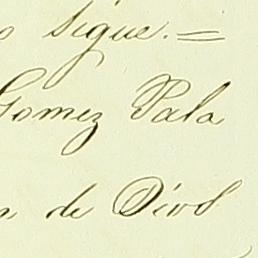 o sigue.=
Gomez Pala
n de Divos